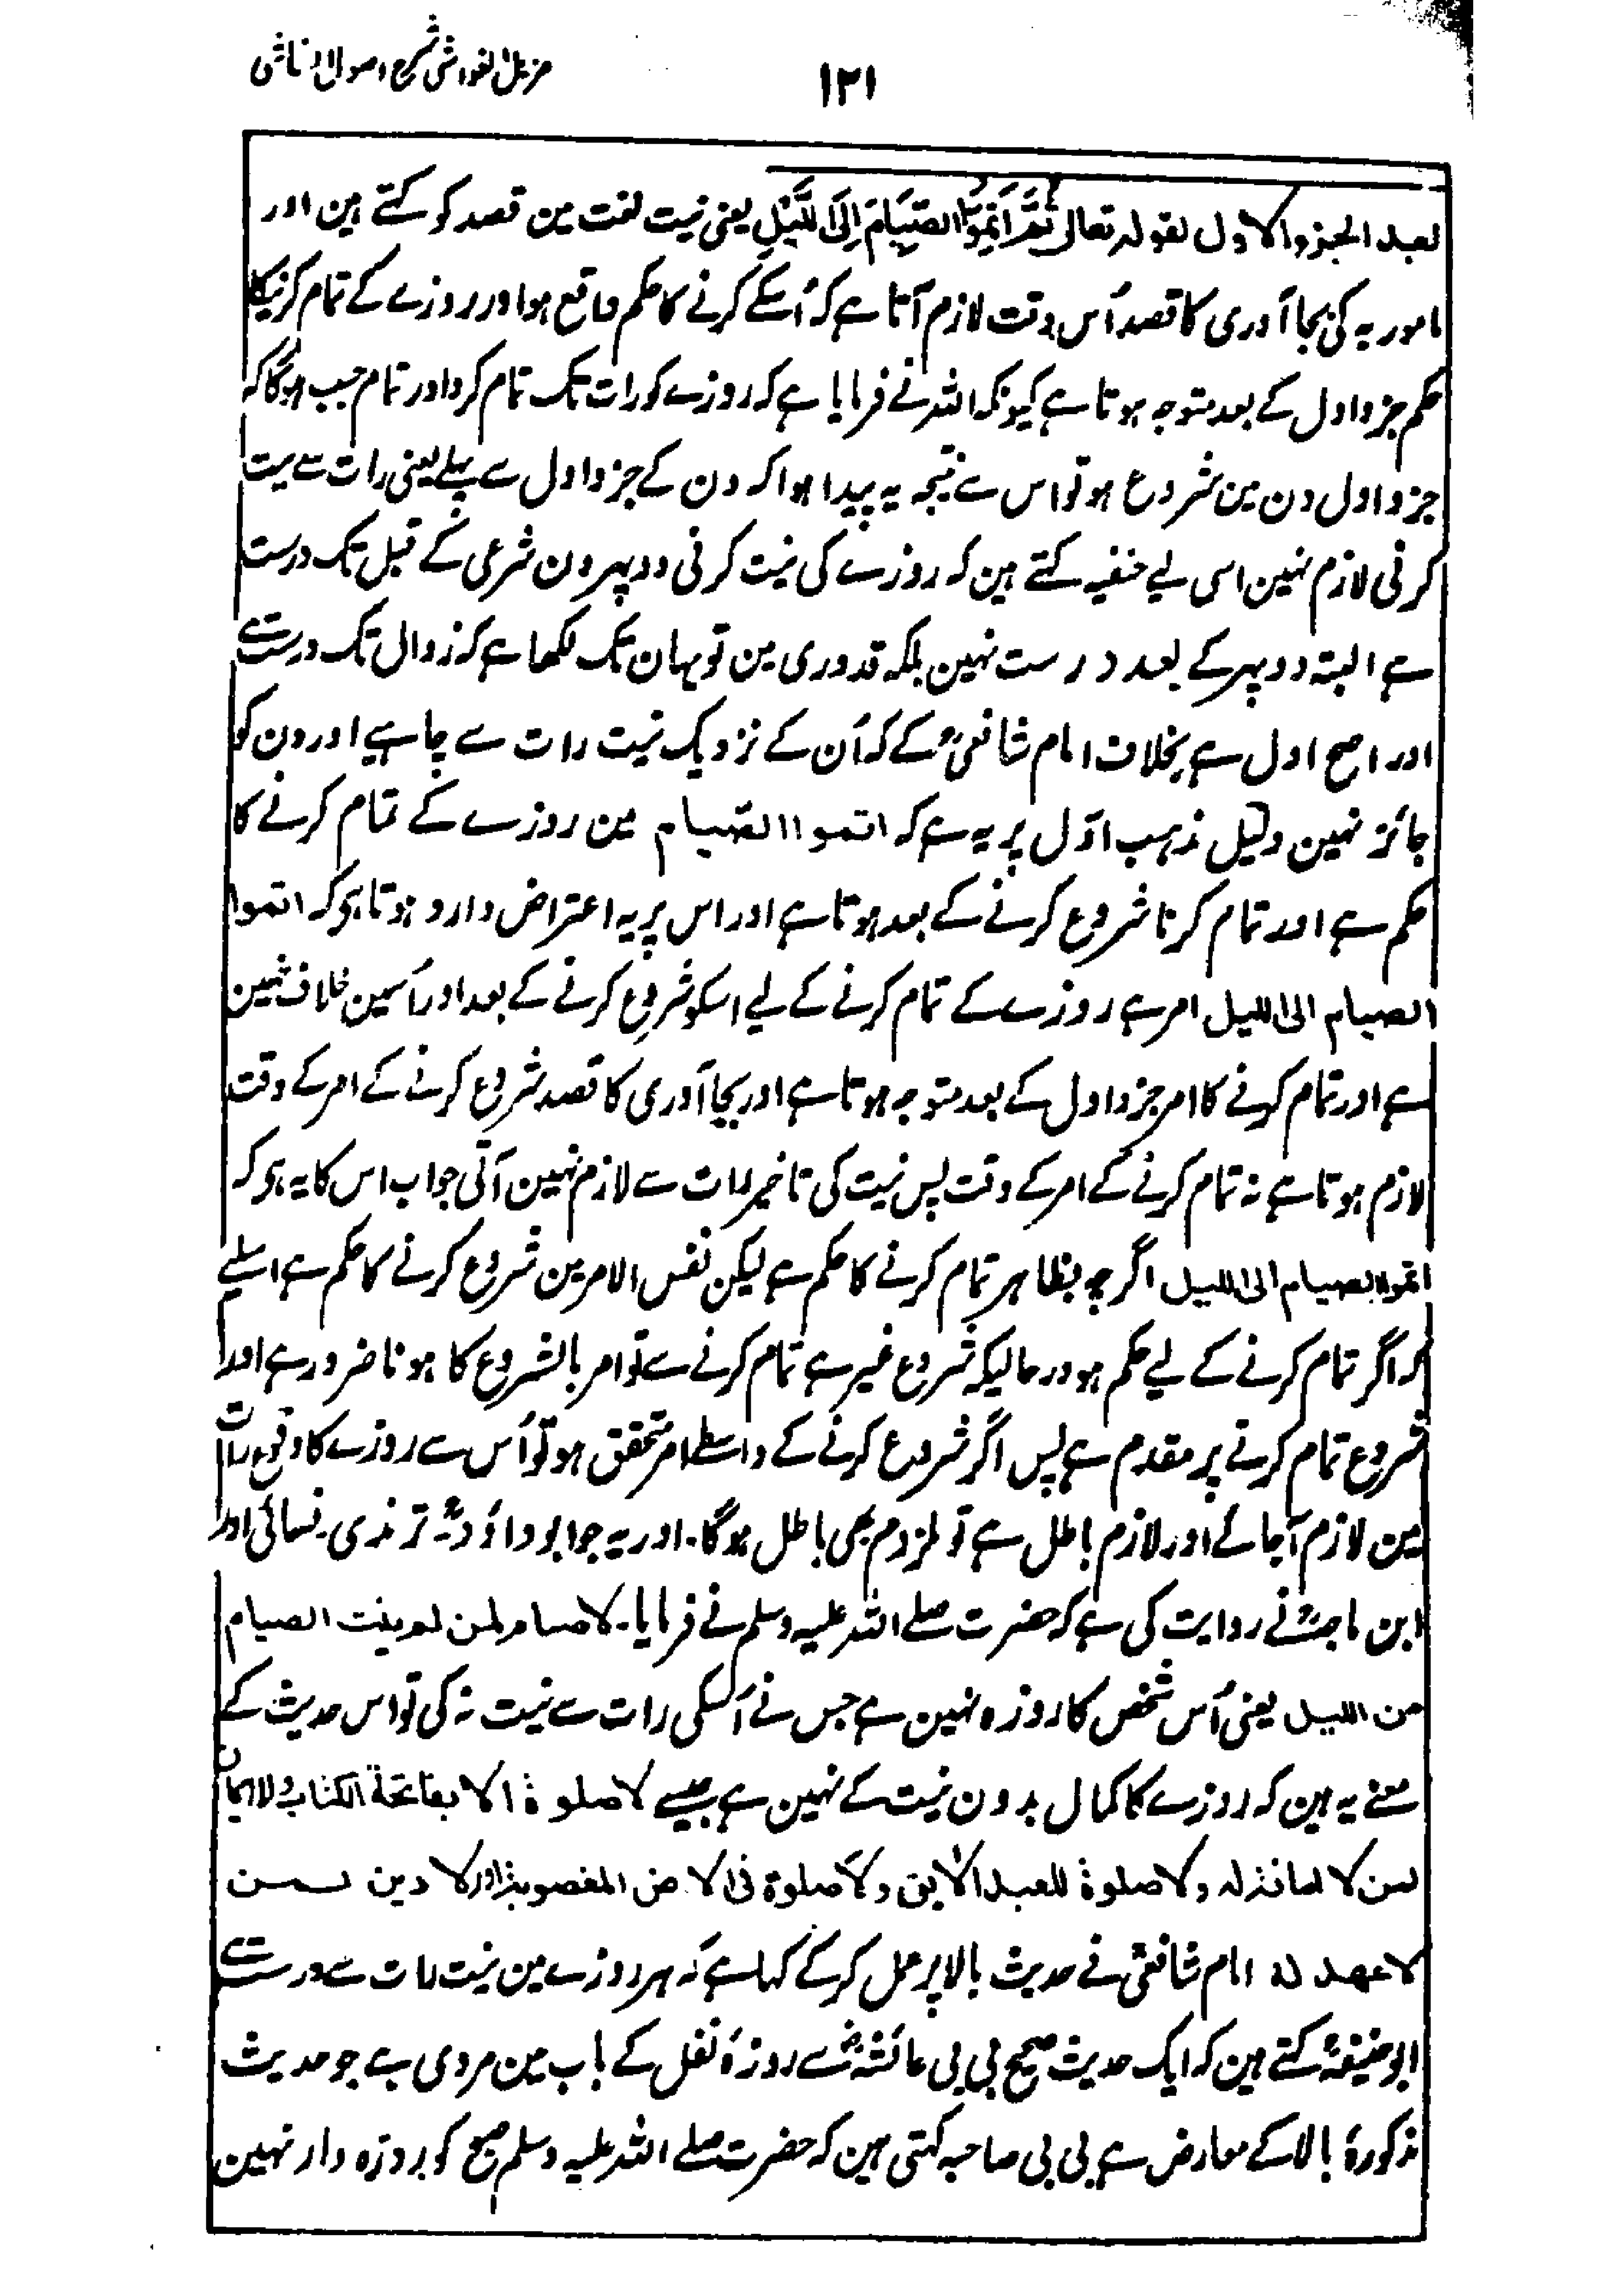 مزیل الغواشی شرح اصول الشاشی
۱۲۱
بعد الجزء الاول لقوله تعالى ثُمَّ اَتِمُّوا الصِّيَامَ اِلَى اللَّيْلِ یعنی نیت لغت مین قصد کو کہتے ہین اور
مامور بہ کی بجا آوری کا قصد اُس وقت لازم آتا ہے کہ اُسکے کرنے کا حکم واقع ہو اور روزے کے تمام کرنیکا
حکم جزو اول کے بعد متوجہ ہوتا ہے کیونکہ اللہ نے فرمایا ہے کہ روزے کو رات تک تمام کرو اور تمام جب ہوگا کہ
جزو اول دن مین شروع ہو تو اس سے نتیجہ یہ پیدا ہوا کہ دن کے جزو اول سے پہلے یعنی رات سے نیت
کرنی لازم نہین اسی لیے حنفیہ کہتے ہین کہ روزے کی نیت کرنی دوپہر دن شرعی کے قبل تک درست
ہے البتہ دوپہر کے بعد درست نہین بلکہ قدوری مین تو یہان تک لکھا ہے کہ زوال تک درست ہے
اور اصح اول ہے بخلاف امام شافعیؒ کے کہ اُن کے نزدیک نیت رات سے چاہیے اور دن کو
جائز نہین دلیل مذہب اوّل پر یہ ہے کہ اتموا الصّیام مین روزے کے تمام کرنے کا
حکم ہے اور تمام کرنا شروع کرنے کے بعد ہوتا ہے اور اس پر یہ اعتراض وارد ہوتا ہی کہ اتموا
الصیام الی اللیل امر ہے روزے کے تمام کرنے کے لیے اسکو شروع کرنے کے بعد اور اُسمین خلاف نہین
ہے اور تمام کرنے کا امر جزو اول کے بعد متوجہ ہوتا ہے اور بجا آوری کا قصد شروع کرنے کے امر کے وقت
لازم ہوتا ہے نہ تمام کرنے کے امر کے وقت پس نیت کی تاخیر رات سے لازم نہین آتی جواب اس کا یہ ہی کہ
اتموا الصیام الی اللیل اگرچہ بظاہر تمام کرنے کا حکم ہے لیکن نفس الامر مین شروع کرنے کا حکم ہے اسلیے
کہ اگر تمام کرنے کے لیے حکم ہو درحالیکہ شروع غیر ہے تمام کرنے سے تو امر بالشروع کا ہونا ضرور ہے اور
شروع تمام کرنے پر مقدم ہے پس اگر شروع کرنے کے واسطے امر متحقق ہو تو اُس سے روزے کا وقوع رات
مین لازم آجائے اور لازم باطل ہے تو ملزوم بھی باطل ہوگا۔ اور یہ جو ابو داؤدؒ۔ ترمذی۔ نسائی اور
ابن ماجہؒ نے روایت کی ہے کہ حضرت صلے اللہ علیہ وسلم نے فرمایا۔ لا صیام لمن لم یبیت الصیام
من اللیل یعنی اُس شخص کا روزہ نہین ہے جس نے اُسکی رات سے نیت نہ کی تو اس حدیث کے
معنے یہ ہین کہ روزے کا کمال بدون نیت کے نہین ہے جیسے لا صلوة الا بفاتحة الکتاب و لا ایمان
لمن لا امانة له ولا صلوة للعبد الآبق ولا صلوة فی الارض المغصوبة اور لا دین لمن
لا عهد له امام شافعیؒ نے حدیث بالا پر عمل کرکے کہا ہے کہ ہر روزے مین نیت رات سے درست ہے
ابو حنیفہؒ کہتے ہین کہ ایک حدیث صحیح بی بی عائشہؓ سے روزۂ نفل کے باب مین مروی ہے جو حدیث
مذکورۂ بالا کے معارض ہے بی بی صاحبہ کہتی ہین کہ حضرت صلے اللہ علیہ وسلم صبح کو روزہ دار نہین